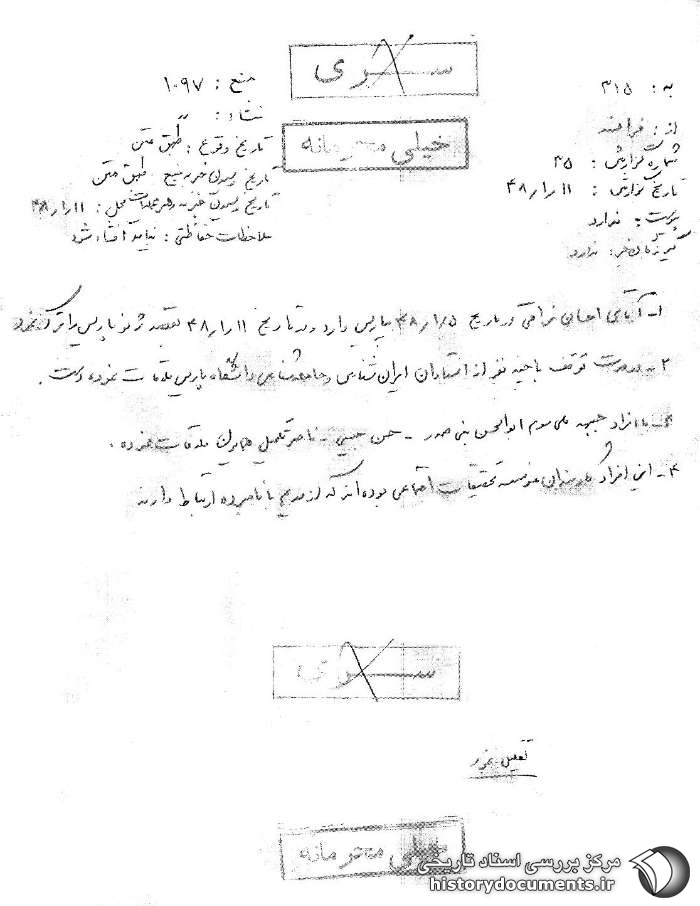 سری
خیلی محرمانه
به : ۳۱۵
از : فرانسه
شماره گزارش : ۲۵
تاریخ گزارش : ۴۸/۱/۱۱
پیوست : ندارد
گیرندگان خبر : ندارد
منبع : ۱۰۹۷
منشاء : "
تاریخ وقوع : طبق متن
تاریخ رسیدن خبر به منبع : طبق متن
تاریخ رسیدن خبر به رهبر عملیات محل : ۴۸/۱/۱۱
ملاحظات حفاظتی : نباید افشاء شود
۱- آقای احسان نراقی در تاریخ ۴۸/۱/۵ بپاریس وارد و در تاریخ ۴۸/۱/۱۱ بقصد ژنو پاریس را ترک نمود
۲- در مدت توقف با چند نفر از استادان ایران شناسی و جامعه شناسی دانشگاه پاریس ملاقات نموده است .
۳- با افراد جبهه ملی سوم ابوالحسن بنی صدر - حسن حبیبی - ناصر تکمیل همایون ملاقات نموده .
۴- این افراد کارمندان موسسه تحقیقات اجتماعی بوده اند که از قدیم با نامبرده ارتباط دارند
سری
خیلی محرمانه
مرکز بررسی اسناد تاریخی
historydocuments.ir